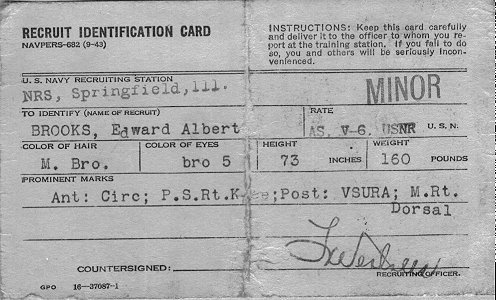 RECRUIT IDENTIFICATION CARD
NAVPERS-682 (9-43)
INSTRUCTIONS: Keep this card carefully
and deliver it to the officer to whom you re-
port at the training station. If you fail to do
so, you and others will be seriously incon-
venienced.
U. S. NAVY RECRUITING STATION
NRS, Springfield,Ill.
MINOR
TO IDENTIFY (NAME OF RECRUIT)
BROOKS, Edward Albert
RATE
AS, V-6, USNR U. S. N.
COLOR OF HAIR
M. Bro.
COLOR OF EYES
bro 5
HEIGHT
73 INCHES
WEIGHT
160 POUNDS
PROMINENT MARKS
Ant: Circ; P.S.Rt.Knee;Post: VSURA; M.Rt.
Dorsal
COUNTERSIGNED:
RECRUITING OFFICER.
GPO 16—37087-1